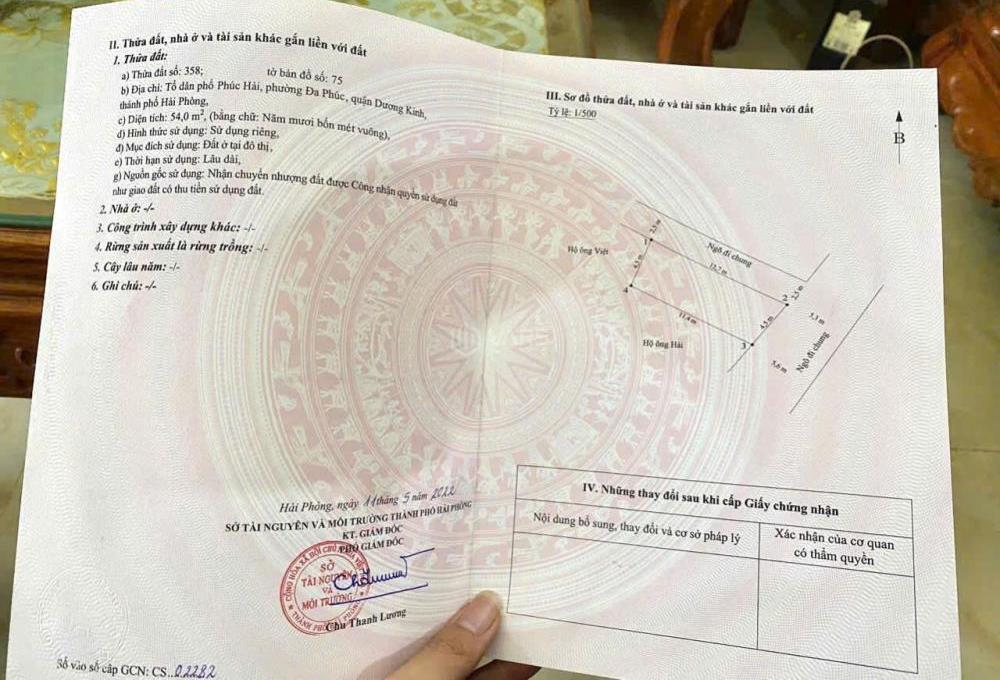 II. Thửa đất, nhà ở và tài sản khác gắn liền với đất
1. Thửa đất:
a) Thửa đất số: 358; tờ bản đồ số: 75
b) Địa chỉ: Tổ dân phố Phúc Hải, phường Đa Phúc, quận Dương Kinh,
thành phố Hải Phòng,
c) Diện tích: 54,0 m², (bằng chữ: Năm mươi bốn mét vuông),
d) Hình thức sử dụng: Sử dụng riêng,
đ) Mục đích sử dụng: Đất ở tại đô thị,
e) Thời hạn sử dụng: Lâu dài,
g) Nguồn gốc sử dụng: Nhận chuyển nhượng đất được Công nhận quyền sử dụng đất
như giao đất có thu tiền sử dụng đất.
2. Nhà ở: -/-
3. Công trình xây dựng khác: -/-
4. Rừng sản xuất là rừng trồng: -/-
5. Cây lâu năm: -/-
6. Ghi chú: -/-
Hải Phòng, ngày 11 tháng 5 năm 2022
SỞ TÀI NGUYÊN VÀ MÔI TRƯỜNG THÀNH PHỐ HẢI PHÒNG
KT. GIÁM ĐỐC
PHÓ GIÁM ĐỐC
SỞ
TÀI NGUYÊN
VÀ
MÔI TRƯỜNG
Chu Thanh Lương
Số vào sổ cấp GCN: CS..02282
III. Sơ đồ thửa đất, nhà ở và tài sản khác gắn liền với đất
Tỷ lệ: 1/500
B
2,5 m
1
Hộ ông Việt
Ngõ đi chung
4,5 m
12,7 m
4
2
2,5 m
11,4 m
4,5 m
3,3 m
Hộ ông Hải
3
Ngõ đi chung
3,6 m
IV. Những thay đổi sau khi cấp Giấy chứng nhận
Nội dung bổ sung, thay đổi và cơ sở pháp lý
Xác nhận của cơ quan
có thẩm quyền